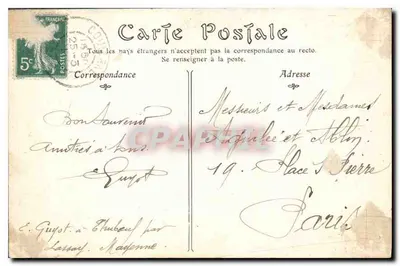 Carte Postale
Tous les pays étrangers n'acceptent pas la correspondance au recto.
Se renseigner à la poste.
Correspondance
Adresse
5c
POSTES
25-5
Bon Souvenir
Amitiés à tous
Guyot
E. Guyot à Thuboeuf par
Lassay. Mayenne
Messieurs et Mesdames
et
19, Place St Pierre
Paris